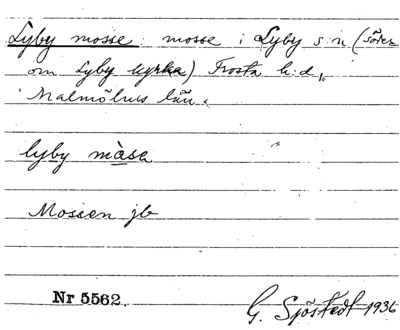 Lyby mosse: mosse i Lyby s:n (söder
om Lyby kyrka) Frosta h:d,
Malmöhus län.
lyby màsa
Mossen jb
Nr 5562.
G. Sjöstedt 1936